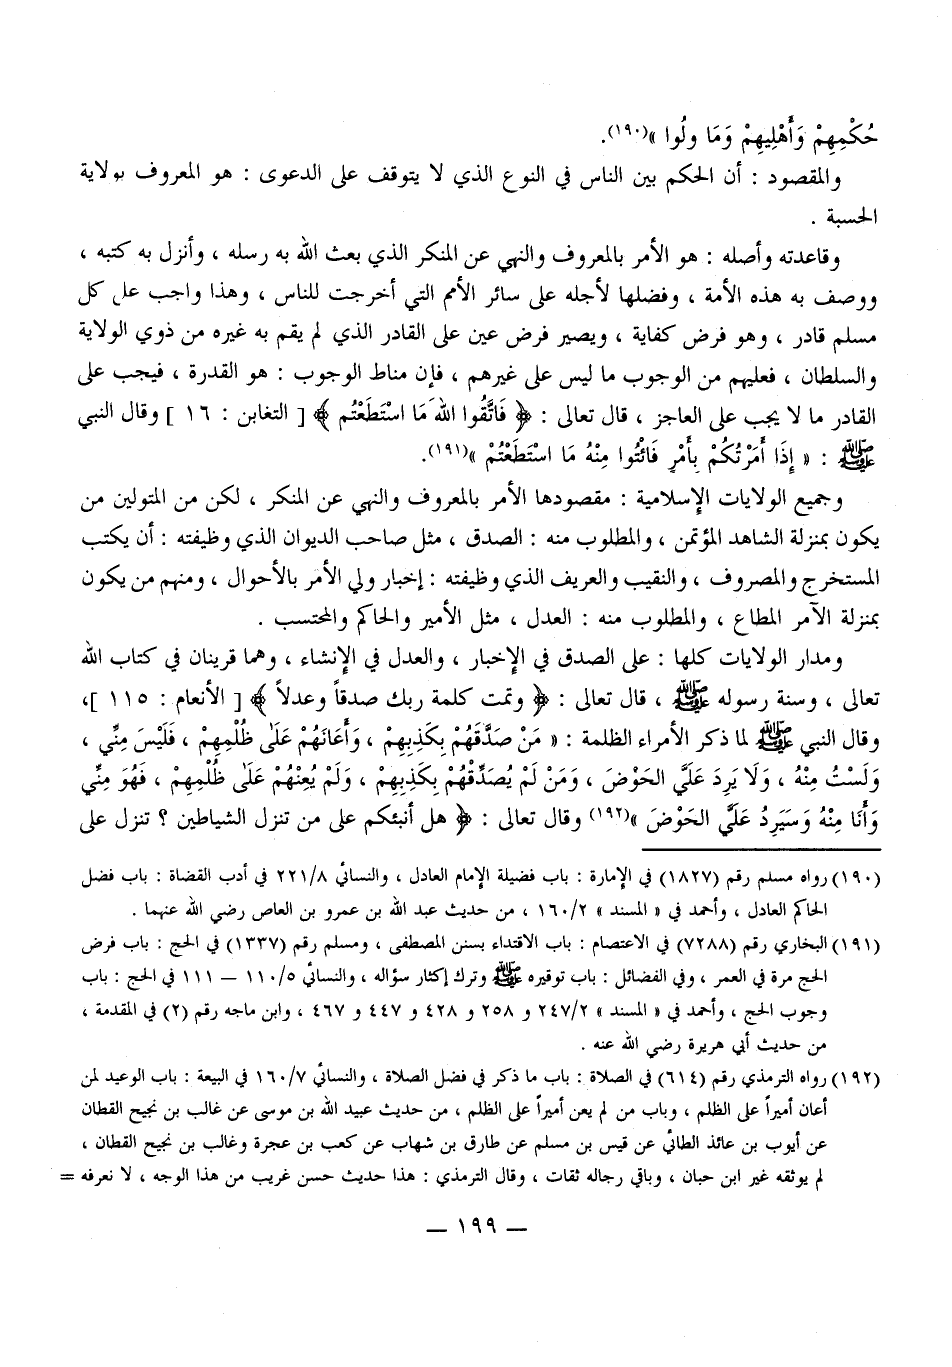 حُكْمِهِمْ وَأَهْلِيهِمْ وَمَا ولُوا »(١٩٠).
والمقصود : أن الحكم بين الناس في النوع الذي لا يتوقف على الدعوى : هو المعروف بولاية
الحسبة .
وقاعدته وأصله : هو الأمر بالمعروف والنهي عن المنكر الذي بعث الله به رسله ، وأنزل به كتبه ،
ووصف به هذه الأمة ، وفضلها لأجله على سائر الأمم التي أخرجت للناس ، وهذا واجب على كل
مسلم قادر ، وهو فرض كفاية ، ويصير فرض عين على القادر الذي لم يقم به غيره من ذوي الولاية
والسلطان ، فعليهم من الوجوب ما ليس على غيرهم ، فإن مناط الوجوب : هو القدرة ، فيجب على
القادر ما لا يجب على العاجز ، قال تعالى : ﴿ فَاتَّقُوا اللهَ مَا اسْتَطَعْتُم ﴾ [ التغابن : ١٦ ] وقال النبي
ﷺ : « إِذَا أَمَرْتُكُمْ بِأَمْرٍ فَائْتُوا مِنْهُ مَا اسْتَطَعْتُمْ »(١٩١).
وجميع الولايات الإسلامية : مقصودها الأمر بالمعروف والنهي عن المنكر ، لكن من المتولين من
يكون بمنزلة الشاهد المؤتمن ، والمطلوب منه : الصدق ، مثل صاحب الديوان الذي وظيفته : أن يكتب
المستخرج والمصروف ، والنقيب والعريف الذي وظيفته : إخبار ولي الأمر بالأحوال ، ومنهم من يكون
بمنزلة الآمر المطاع ، والمطلوب منه : العدل ، مثل الأمير والحاكم والمحتسب .
ومدار الولايات كلها : على الصدق في الإخبار ، والعدل في الإنشاء ، وهما قرينان في كتاب الله
تعالى ، وسنة رسوله ﷺ ، قال تعالى : ﴿ وتمت كلمة ربك صدقاً وعدلاً ﴾ [ الأنعام : ١١٥ ]،
وقال النبي ﷺ لما ذكر الأمراء الظلمة : « مَنْ صَدَّقَهُمْ بِكَذِبِهِمْ ، وَأَعَانَهُمْ عَلَىٰ ظُلْمِهِمْ ، فَلَيْسَ مِنِّي ،
وَلَسْتُ مِنْهُ ، وَلَا يَرِدَ عَلَيَّ الحَوْضَ ، وَمَنْ لَمْ يُصَدِّقْهُمْ بِكَذِبِهِمْ ، وَلَمْ يُعِنْهُمْ عَلَىٰ ظُلْمِهِمْ ، فَهُوَ مِنِّي
وَأَنَا مِنْهُ وَسَيَرِدُ عَلَيَّ الحَوْضَ »(١٩٢) وقال تعالى : ﴿ هل أنبئكم على من تنزل الشياطين ؟ تنزل على
(١٩٠) رواه مسلم رقم (١٨٢٧) في الإمارة : باب فضيلة الإمام العادل ، والنسائي ٢٢١/٨ في أدب القضاة : باب فضل
الحاكم العادل ، وأحمد في « المسند » ١٦٠/٢ ، من حديث عبد الله بن عمرو بن العاص رضي الله عنهما .
(١٩١) البخاري رقم (٧٢٨٨) في الاعتصام : باب الاقتداء بسنن المصطفى ، ومسلم رقم (١٣٣٧) في الحج : باب فرض
الحج مرة في العمر ، وفي الفضائل : باب توقيره ﷺ وترك إكثار سؤاله ، والنسائي ١١٠/٥ — ١١١ في الحج : باب
وجوب الحج ، وأحمد في « المسند » ٢٤٧/٢ و ٢٥٨ و ٤٢٨ و ٤٤٧ و ٤٦٧ ، وابن ماجه رقم (٢) في المقدمة ،
من حديث أبي هريرة رضي الله عنه .
(١٩٢) رواه الترمذي رقم (٦١٤) في الصلاة : باب ما ذكر في فضل الصلاة ، والنسائي ١٦٠/٧ في البيعة : باب الوعيد لمن
أعان أميراً على الظلم ، وباب من لم يعن أميراً على الظلم ، من حديث عبيد الله بن موسى عن غالب بن نجيح القطان
عن أيوب بن عائذ الطائي عن قيس بن مسلم عن طارق بن شهاب عن كعب بن عجرة وغالب بن نجيح القطان ،
لم يوثقه غير ابن حبان ، وباقي رجاله ثقات ، وقال الترمذي : هذا حديث حسن غريب من هذا الوجه ، لا نعرفه =
— ١٩٩ —